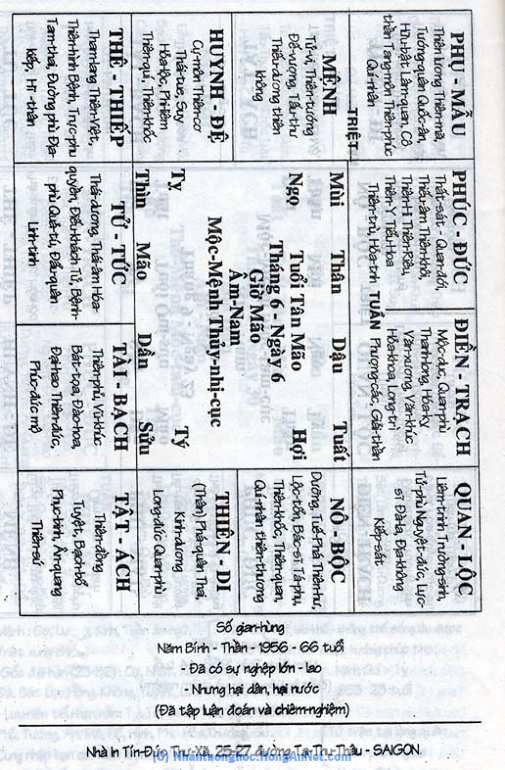 PHỤ - MẪU
Thiên lương, Thiên-mã,
Tướng-quân Quốc-ấn,
Hữu-bật Lâm-quan, Cô
thần Tang-môn Thiên-phúc
Quí-nhân
MỆNH
Tử-vi, Thiên-tướng
Đế-vượng, Tấu-thư
Thiếu-dương thiên
không
TRIỆT
HUYNH - ĐỆ
Cự-môn Thiên-cơ
Thái-tuế, Suy
Hóa-lộc, Phi-liêm
Thiên-quí, Thiên-khốc
THÊ - THIẾP
Tham-lang Thiên-Việt,
Thiên-hình Bệnh, Trực-phu
Tam-thai, Đường phù Địa-
kiếp, Hỉ -thần
PHÚC - ĐỨC
Thất-sát - Quan-đới,
Thiếu-âm Thiên-khôi,
Thiên-Hỉ Thiên-Riêu,
Thiên-Y Tiểu-Hoa
Thiên-trù, Hỏa-tinh
Mùi
Thân
Dậu
Tuất
Ngọ
Tuổi Tân Mão
Tháng 6 - Ngày 6
Giờ Mão
Âm-Nam
Mộc-Mệnh Thủy-nhị-cục
Hợi
Tỵ
Tý
Thìn
Mão
Dần
Sửu
TỬ - TỨC
Thái-dương, Thái-âm Hóa-
quyền, Điếu-khách Tử, Bệnh-
phù Quả-tú, Đẩu-quân
Linh-tinh
ĐIỀN - TRẠCH
Mộc-dục, Quan-phù
Thanh-long, Hóa-Kỵ
Văn-xương, Văn-khúc
Hóa-khoa, Long-trì
Phượng-các, Giải-thần
TUẦN
TÀI - BẠCH
Thiên-phủ, Vũ-khúc
Bát-tọa, Đào-hoa,
Đại-hao Thiên-đức,
Phúc-đức mộ
QUAN - LỘC
Liêm-trinh Trường-sinh,
Tử-phù Nguyệt-đức, Lực-
sĩ Đà-la, Địa-không
Kiếp-sát
NÔ - BỘC
Dưỡng, Tuế-Phá Thiên-hư,
Lộc-tồn, Bác-sĩ Tả-phụ,
Thiên-khốc, Thiên-quan,
Quí-nhân thiên-thương
THIÊN - DI
(Thân) Phá-quân Thai,
Kình-dương
Long-đức Quan-phù
TẬT - ÁCH
Thiên-đồng
Tuyệt, Bạch-hổ
Phục-binh, Ân-quang
Thiên-sứ
Số gian-hùng
Năm Bính - Thân - 1956 - 66 tuổi
- Đã có sự nghiệp lớn - lao
- Nhưng hại dân, hại nước
(Đã tập luận đoán và chiêm-nghiệm)
Nhà in Tín-Đức Thư-Xã, 25-27 đường Tạ-Thu-Thâu - SAIGON
(C) Nhantuonghoc.HongAnNet.Com